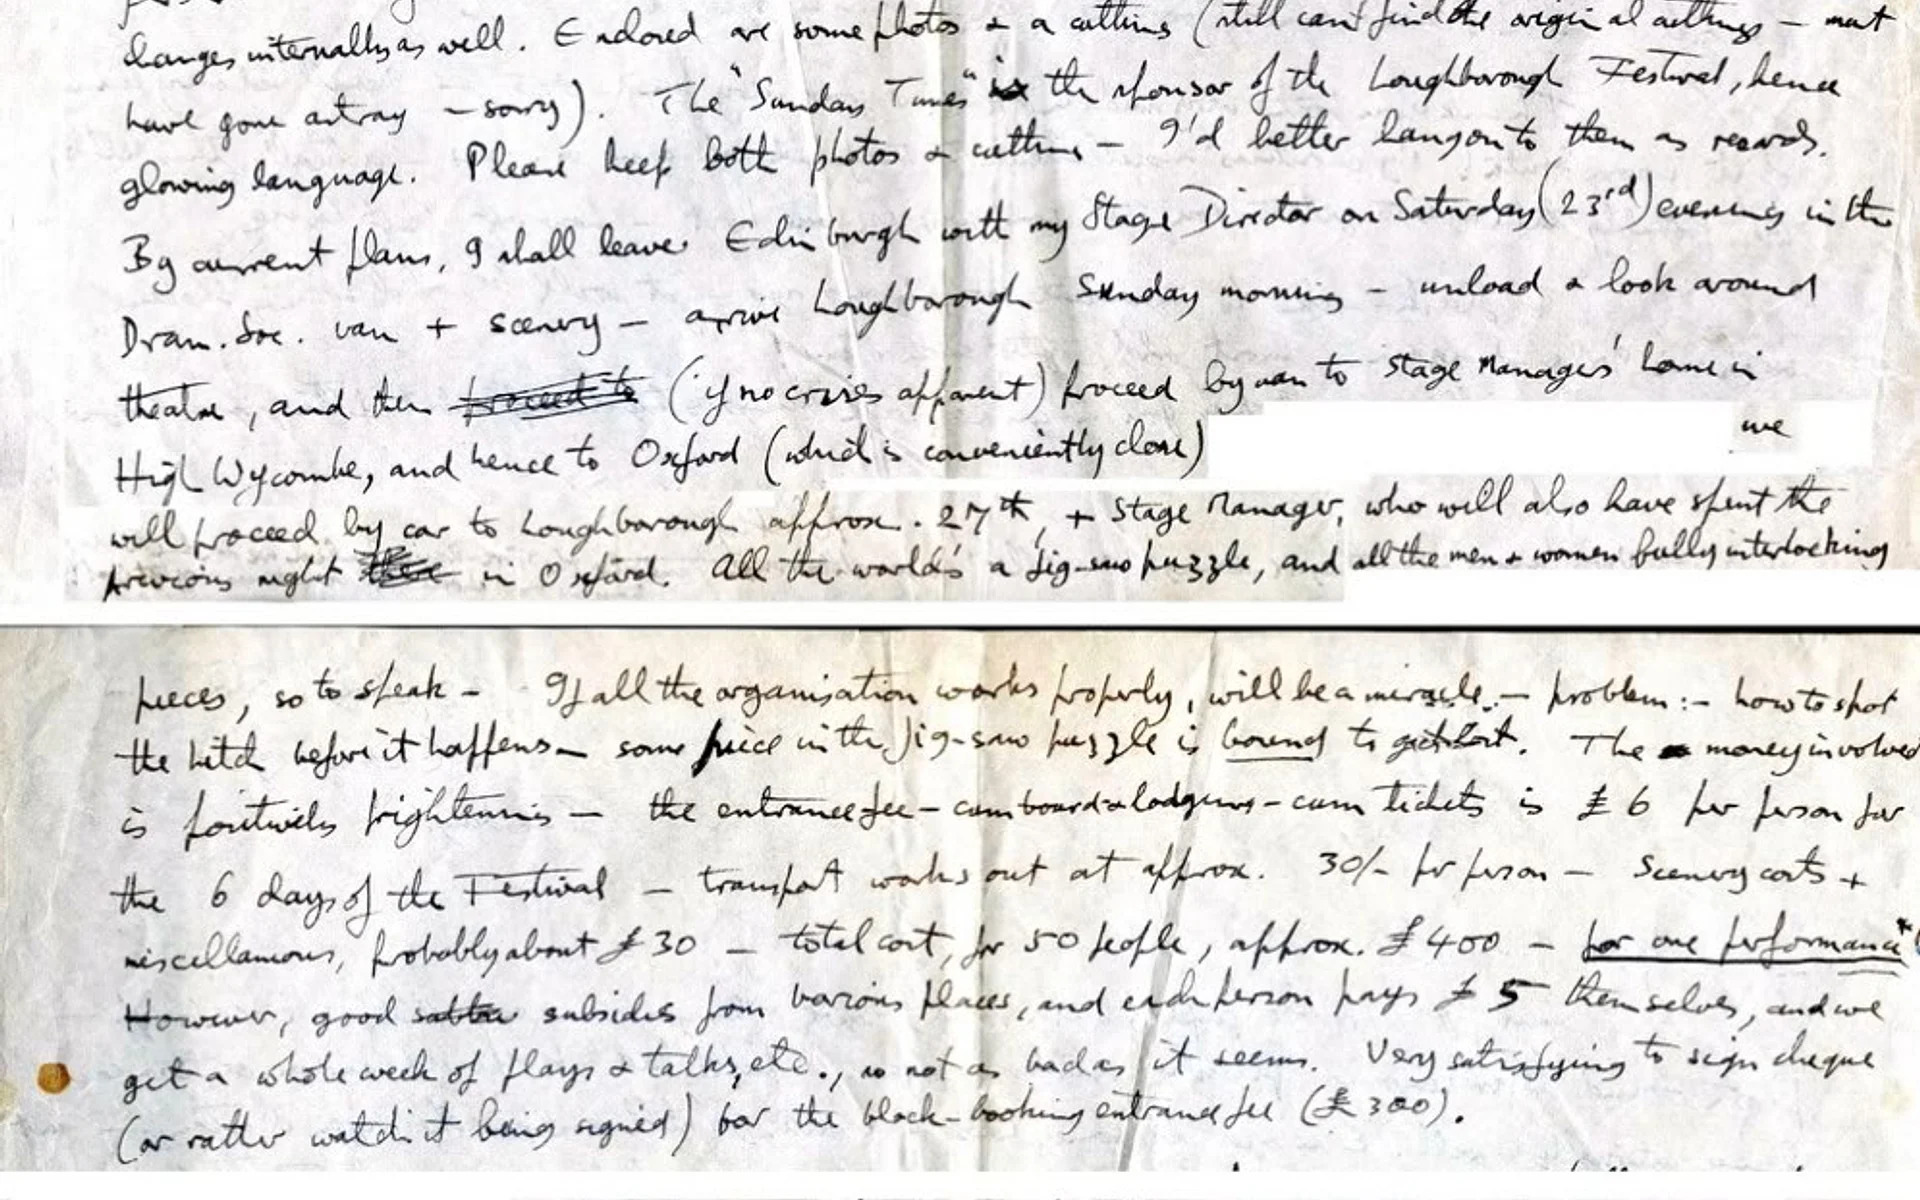 changes internally as well. Enclosed are some photos & a cutting (still can't find the original cuttings – must
have gone astray – sorry). The "Sunday Times" is the sponsor of the Loughborough Festival, hence
glowing language. Please keep both photos & cutting – I'd better hang on to them as records.
By current plans, I shall leave Edinburgh with my Stage Director on Saturday (23rd) evening in the
Dram. Soc. van + scenery – arrive Loughborough Sunday morning – unload & look around
theatre, and then proceed to (if no crises apparent) proceed by van to Stage Manager's home in
High Wycombe, and hence to Oxford (which is conveniently close)
we
will proceed by car to Loughborough approx. 27th, + Stage Manager, who will also have spent the
previous night in Oxford. All the world's a jig-saw puzzle, and all the men & women fully interlocking
pieces, so to speak – If all the organisation works properly, will be a miracle – problem:– how to spot
the hitch before it happens – some piece in the jig-saw puzzle is bound to get lost. The money involved
is positively frightening – the entrance fee – cum board & lodgings – cum tickets is £6 per person for
the 6 days of the Festival – transport works out at approx. 30/- per person – Scenery costs +
miscellaneous, probably about £30 – total cost, for 50 people, approx. £400 – for one performance*
However, good subsidies from various places, and each person pays £5 themselves, and we
get a whole week of plays & talks, etc., so not as bad as it seems. Very satisfying to sign cheque
(or rather watch it being signed) for the block-booking entrance fee (£300).